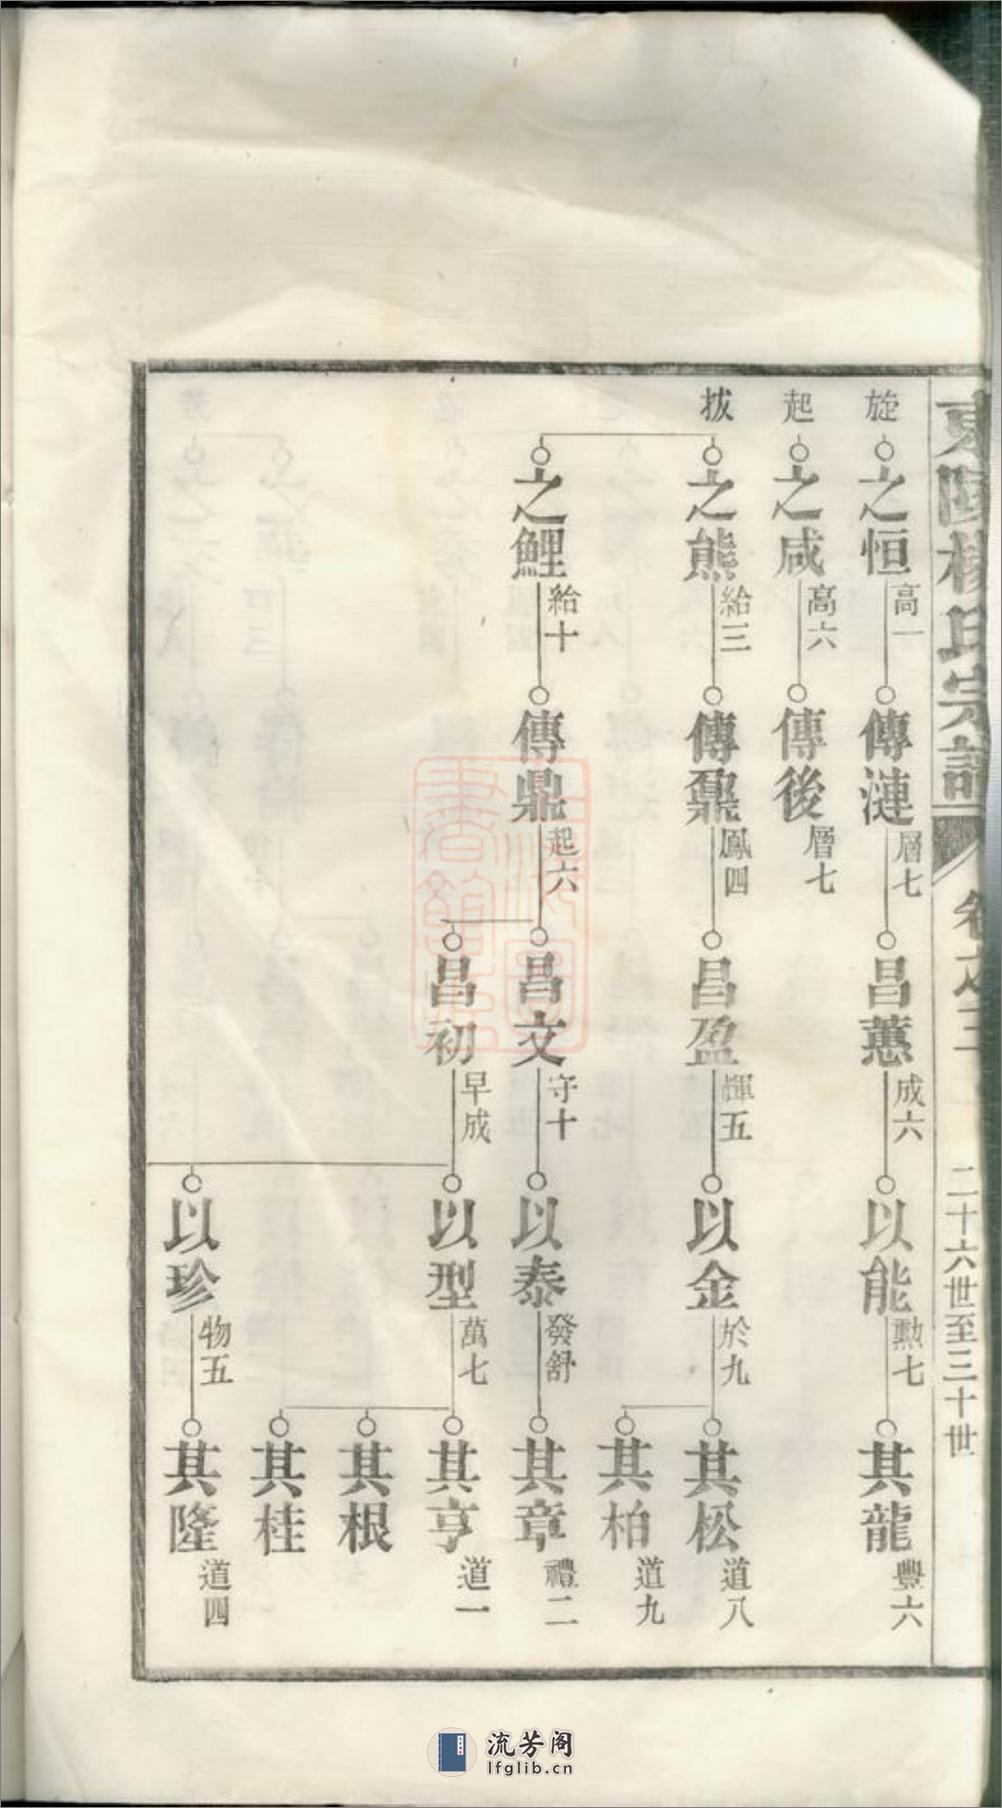 東陽楊氏宗譜
卷之三十
二十六世至三十世
旋
之恒
高一
傳漣
層七
昌蕙
成六
以能
勲七
其龍
豐六
起
之咸
高六
傳後
層七
拔
之熊
給三
傳鼐
鳳四
昌盈
輝五
以金
於九
其松
道八
其柏
道九
之鯉
給十
傳鼎
起六
昌文
守十
以泰
發舒
其章
禮二
昌初
早成
以型
萬七
其亨
道一
其根
其桂
以珍
物五
其隆
道四
流芳阁
lfglib.cn